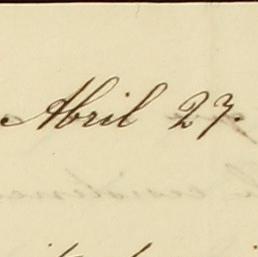 Abril 27.